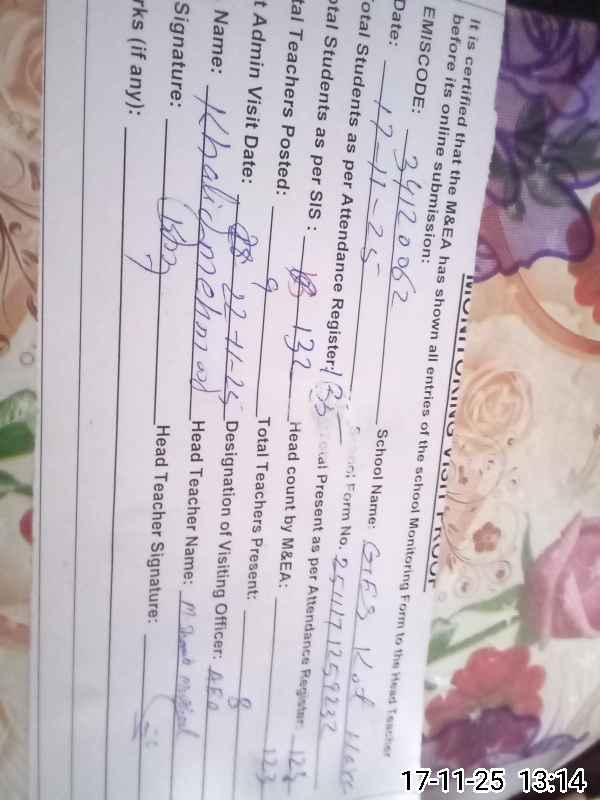 MONITORING VISIT PROOF
It is certified that the M&EA has shown all entries of the school Monitoring Form to the Head Teacher
before its online submission:
EMISCODE: 34120062 School Name: GES Kot
Date: 17-11-25 School Form No. 2511171259232
otal Students as per Attendance Register: 135 Total Present as per Attendance Register:
otal Students as per SIS : 132 Head count by M&EA: 123
tal Teachers Posted: 9 Total Teachers Present: 8
t Admin Visit Date: 22-11-25 Designation of Visiting Officer: AEO
Name: Khalid mehmood Head Teacher Name: M
Signature: Head Teacher Signature:
rks (if any):
17-11-25 13:14